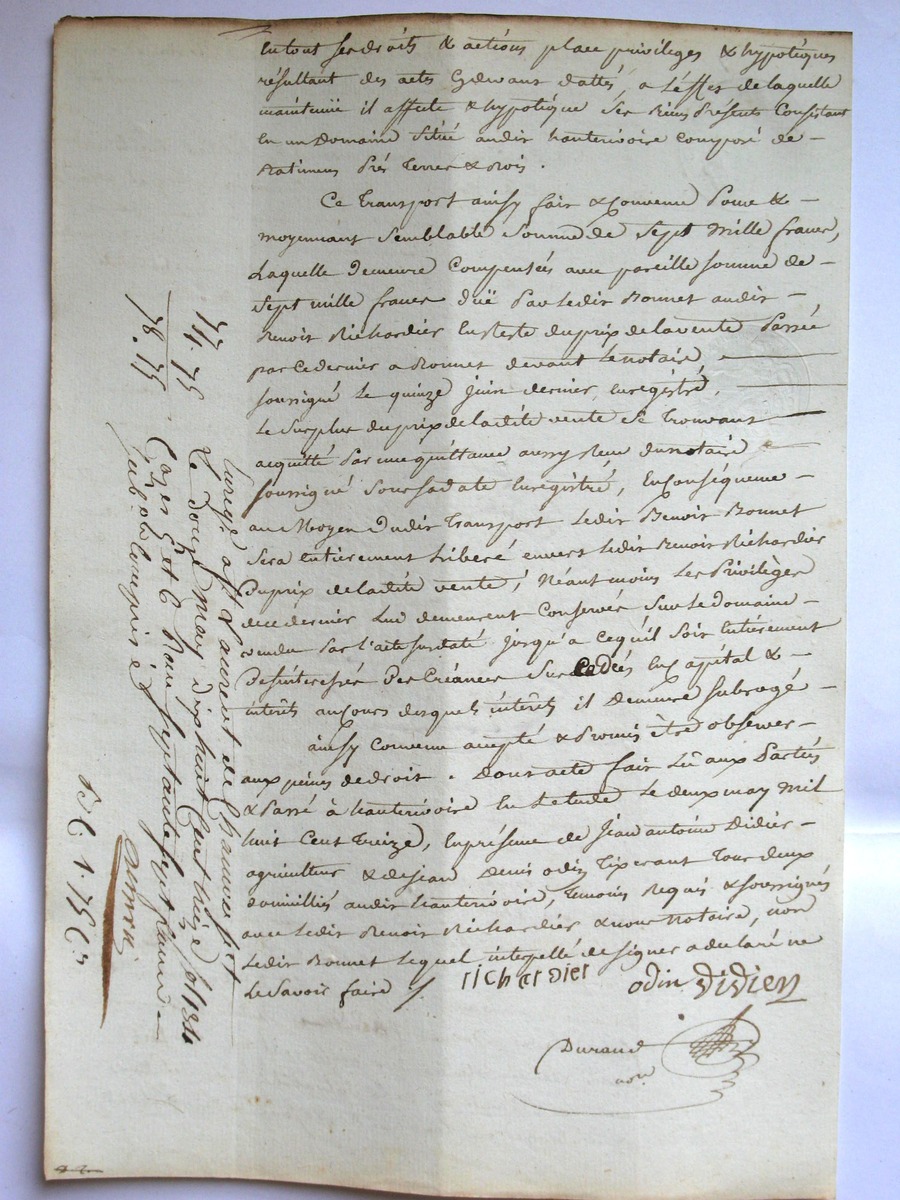 en tout ses droits & actions place privileges & hypotèques
résultant des acts cydevant dattés, a l'effet de laquelle
maintenüe il affecte & hypotèque ses biens présents consistant
en un Domaine situé audit hauterivoire composé de
Batimens Prés Terres & Bois.
Ce Transport ainsy fait & convenu Pour &
moyennant semblable somme de sept mille francs,
laquelle demeure compensée avec pareille somme de
sept mille francs düe Par ledit Bonnet audit
Benoit Richardier en reste du prix de la vente Passée
par ce dernier a Bonnet devant le notaire
soussigné le quinze juin dernier, enregistré,
le surplus du prix de la dite vente se trouvant
acquitté Par une quittance aussy Reçu du notaire
soussigné sous sa date enregistré, en conséquence
au moyen dudit Transport ledit Benoit Bonnet
sera entièrement libéré envers ledit Benoit Richardier
du prix de la dite vente; Néantmoins les Privilèges
de ce dernier lui demeurent conservés sur le domaine
vendu Par l'acte susdaté jusqu'a ce qu'il soit entièrement
désintéressés des créances sus cedées en capital &
intérêts au cours desquels intérêts il demeure subrogé
ainsy convenu accepté & promis être observer
aux peines de droit. Dont acte fait lû aux Parties
& Passé à hauterivoire en l'etude le deux may mil
huit cent treize, en présence de Jean antoine Didier
agriculteur & de Jean Denis odin Tixerant tous deux
domiciliés audit hauterivoire, temoins Requis & soussignés
avec ledit Benoit Richardier & nous Notaire, non
ledit Bonnet lequel interpellé de signer a déclaré ne
le savoir faire ./.
richardier
odin Didier
Durand
nore
77. 75
78. 15
Enregé a St Laurent de Chamousset
le douze may dix huit cent treize
Reçu
soixante dix sept francs
subon compris